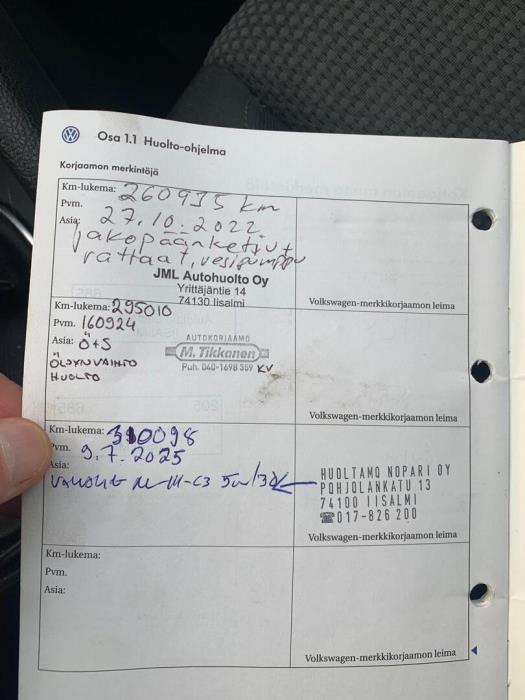 Osa 1.1 Huolto-ohjelma
Korjaamon merkintöjä
Km-lukema: 260935 km
Pvm. 27.10.2022
Asia: jakopäänketjut
rattaat, vesipumppu
JML Autohuolto Oy
Yrittäjäntie 14
74130 Iisalmi
Volkswagen-merkkikorjaamon leima
Km-lukema: 295010
Pvm. 160924
Asia: Ö+S
ÖLJYNVAIHTO
HUOLTO
AUTOKORJAAMO
M. Tikkanen
Puh. 040-1698 359 KV
Volkswagen-merkkikorjaamon leima
Km-lukema: 310098
Pvm. 9.7.2025
Asia:
5w/30
HUOLTAMO NOPARI OY
POHJOLANKATU 13
74100 IISALMI
☎017-826 200
Volkswagen-merkkikorjaamon leima
Km-lukema:
Pvm.
Asia:
Volkswagen-merkkikorjaamon leima